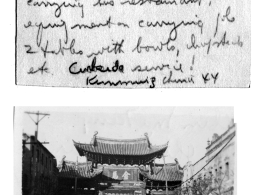 carrying his restaurant,
equipment on carrying job
2 tubs with bowls, chopsticks
etc. Curbside service!
Kunming China XY